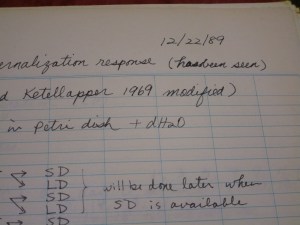 12/22/89
ernalization response (has been seen)
d Ketellapper 1969 modified)
in Petri dish + dH2O
→ SD
→ LD
→ SD
→ LD
SD
will be done later when
SD is available